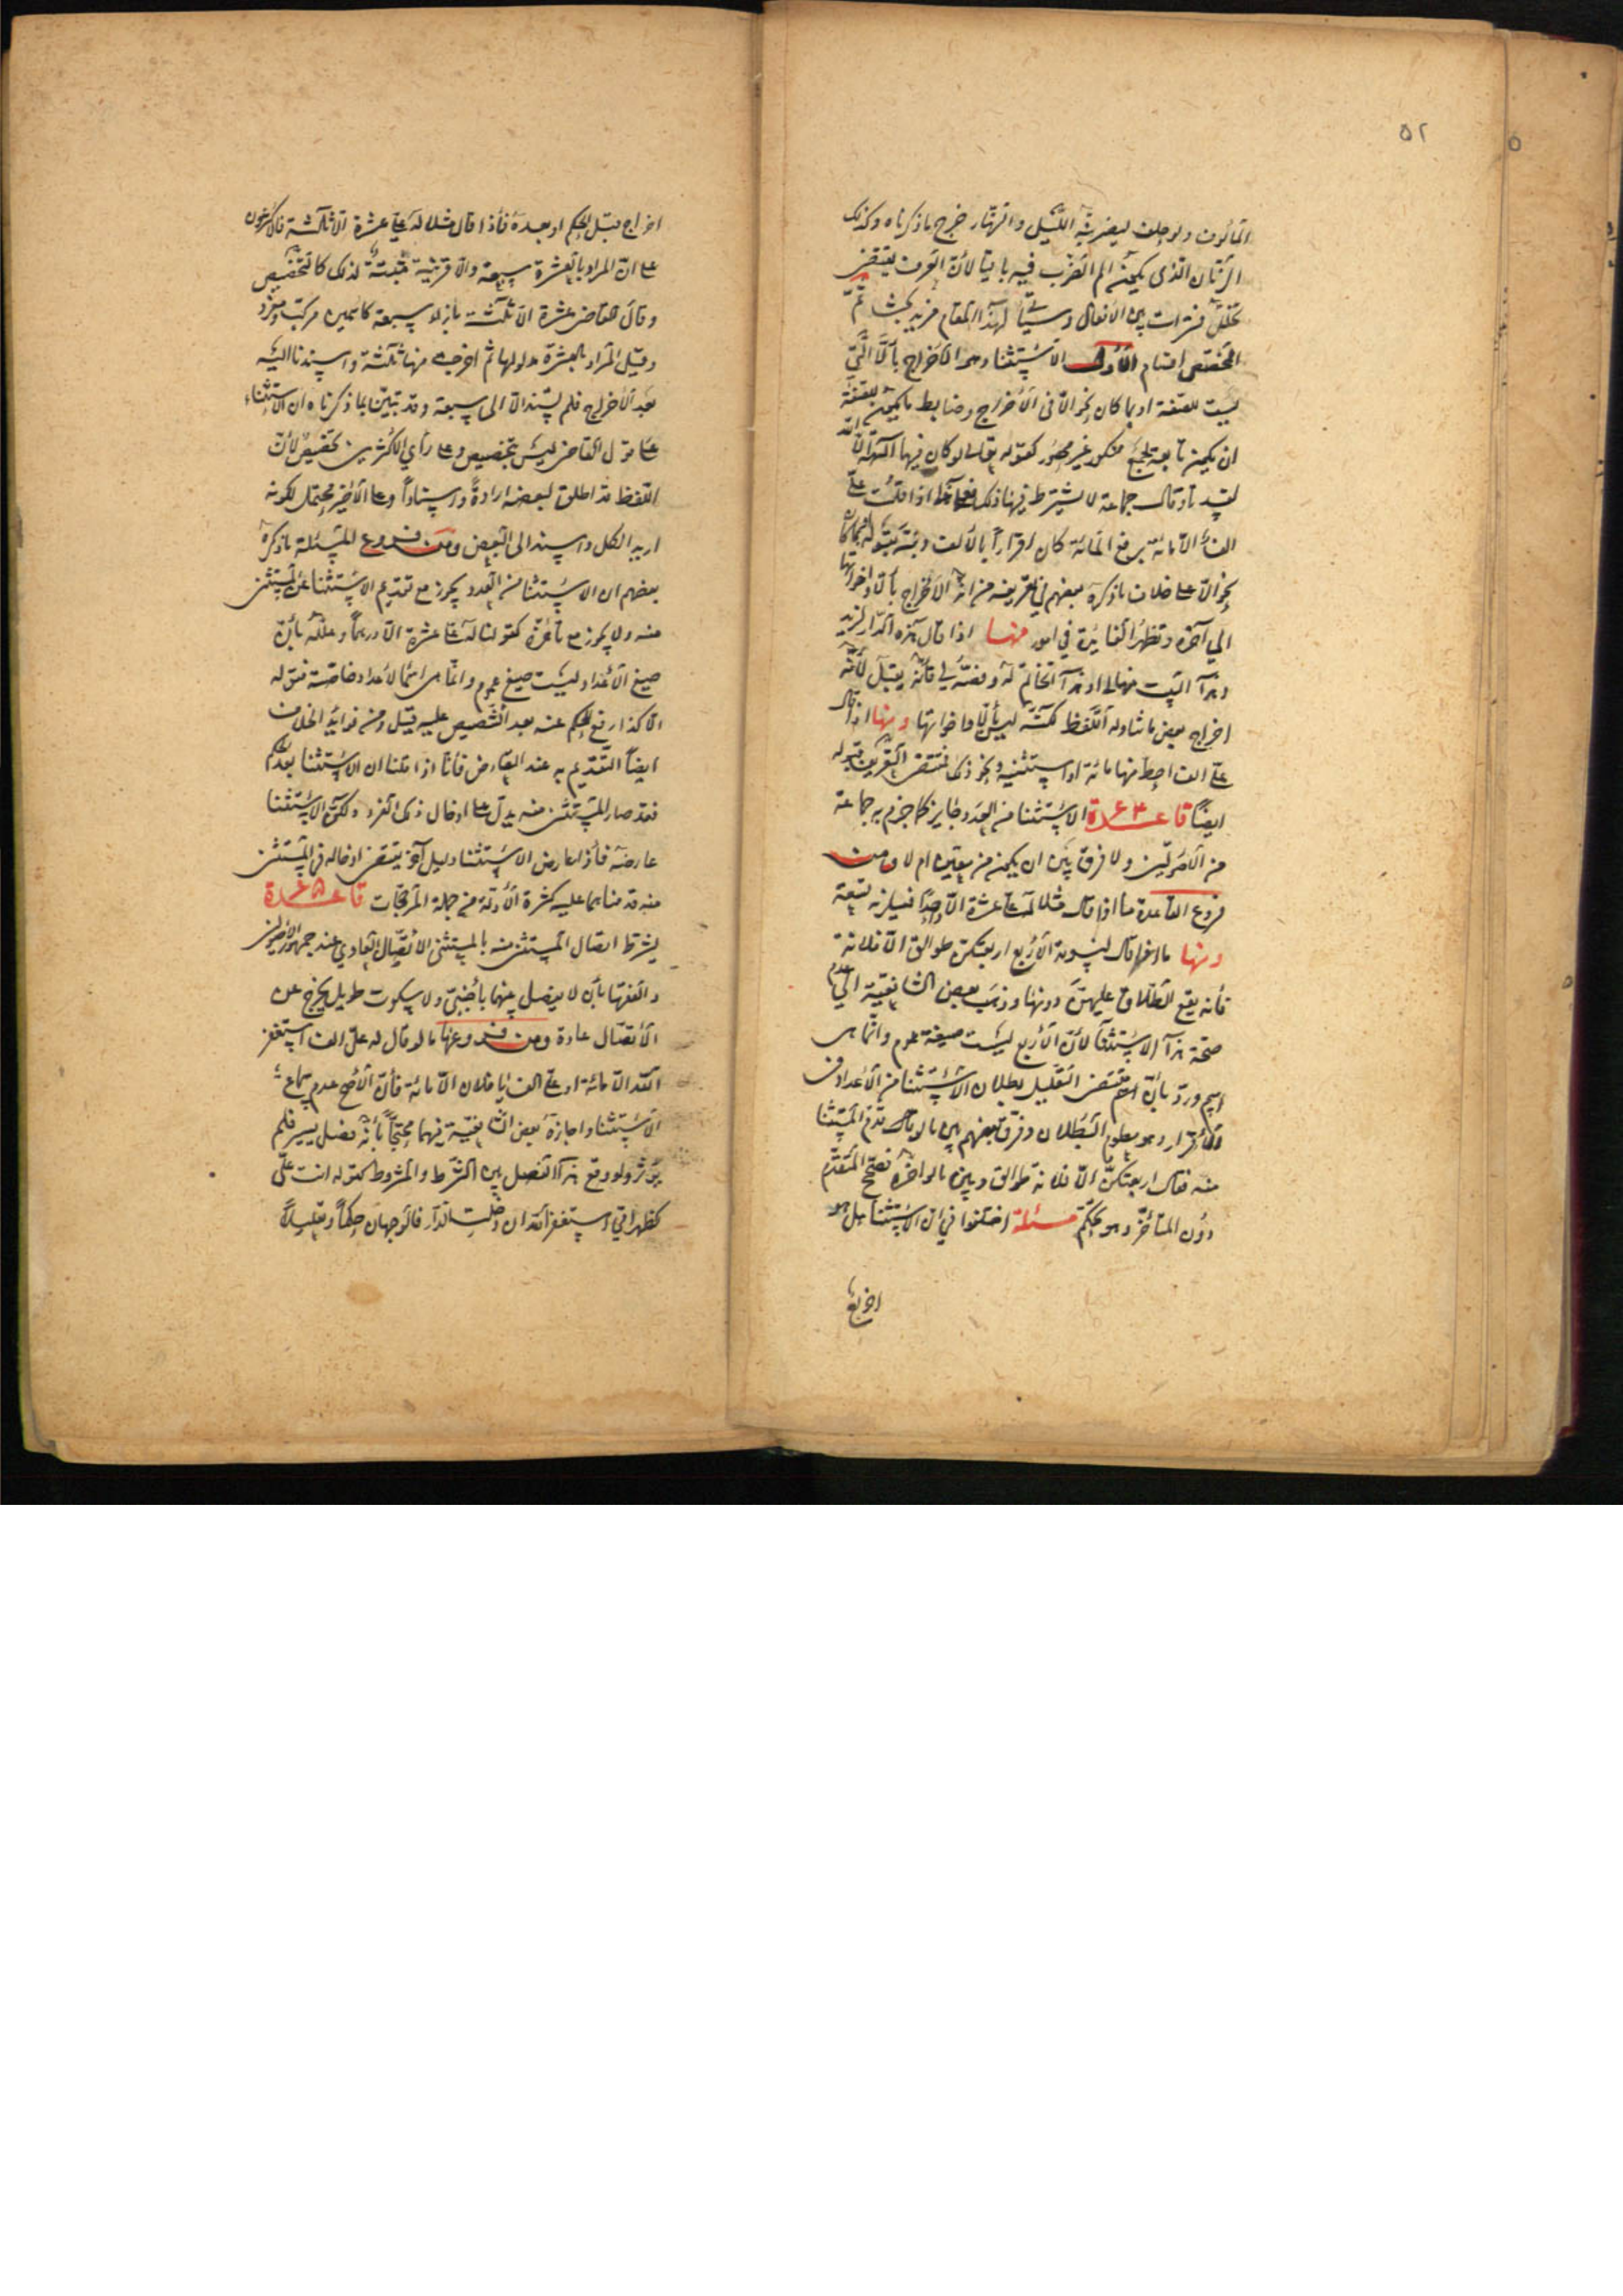 ٥٢
المألوف ولو حلف ليضربنه الليل والنهار خرج ما ذكرناه وكذلك
الزمان الذى يمكنه الم الضرب فيه باقيا لأن العرف يقتضى
تخلل فترات بين الأفعال وسيأتى لهذا المقام مزيد بحث ثم
المخصص اقسام الأول الاستثناء وهو الاخراج بألا التى
ليست للصفة او بما كان نحو الا فى الاخراج وضابط ما يكون للصفة
ان يكون تابعة لجمع منكور غير محصور كقوله تعالى لو كان فيهما آلهة الا الله
لفسدتا وقال جماعة لا يشترط فيها ذلك اذا قلت على
الف الا مائة برفع المائة كان اقرارا بالألف
نحو الا على خلاف ما ذكره بعضهم فى تعريفه من انه الاخراج بألا واخواتها
الى آخره وتظهر الفائدة في امور منها اذا قال هذه الدار لزيد
وهذا البيت منها لى او هذا الخاتم له وفصه لى فأنه يقبل لأنه
اخراج بعض ما تناوله اللفظ لكنه ليس بألا واخواتها ومنها اذا قال
على الف احط منها مائة او استثنيه ونحو ذلك فمقتضى التعريف قبوله
ايضا قاعدة ٦٤ الاستثناء من العدد جايز كما جزم به جماعة
من الأصوليين ولا فرق بين ان يكون من معين ام لا ومن
فروع القاعدة ما اذا قال مثلا له على عشرة الا واحدا فيلزمه تسعة
ومنها ما اذا قال لنسوته الأربع اربعتكن طوالق الا فلانة
فأنه يقع الطلاق عليهن دونها وذهب بعض الشافعية الى عدم
صحة هذا الاستثناء لأن الأربع ليست صيغة عموم وانما هى
اسم ورد بأن مقتضى التعليل بطلان الاستثناء من الأعداد فى
الأقرار وهو معلوم البطلان وفرق بعضهم بين ما لو قال قدم المستثنا
منه فقال اربعتكن الا فلانة طوالق وبين ما لو اخره فصحح المتقدم
دون المتأخر وهو تحكم مسئلة اختلفوا في ان الاستثناء هل هو
اخراج
اخراج قبل الحكم او بعده فأذا قال مثلا له على عشرة الا ثلثة فالأكثرون
على ان المراد بالعشرة سبعة والا قرينة مثبتة لذلك كالتخصيص
وقال القاضى عشرة الا ثلثة بازاء سبعة كاسمين مركب ومفرد
وقيل المراد بالعشرة مدلولها ثم اخرجت منها ثلثة واسندنا اليه
بعد الأخراج فلم يسند الا الى سبعة وقد تبين بما ذكرناه ان الاستثناء
على قول القاضى ليس بتخصيص وعلى رأي الأكثرين تخصيص لأن
اللفظ قد اطلق لبعضه ارادة واسنادا وعلى الأخير محتمل لكونه
اريد الكل واسند الى البعض ومن فروع المسئلة ما ذكره
بعضهم ان الاستثناء من العدد يجوز مع تقديم الاستثناء على المستثنى
منه ولا يجوز مع تأخره كقولنا له على عشرة الا درهما وعلله بأن
صيغ الأعداد ليست صيغ عموم وانما هى اسماء لأعداد خاصة فقوله
الا كذا رفع للحكم عنه بعد التنصيص عليه قيل ومن فوايد الخلاف
ايضا التقديم به عند التعارض فأنا اذا قلنا ان الاستثناء بعد الحكم
فقد صار للمستثنى منه يدل على ادخال ذلك الفرد ولكن الاستثنا
عارضه فأذا عارض الاستثنا دليل آخر يقتضى ادخاله فى المستثنى
منه قدمناهما عليه لكثرة الأدلة من جملة المرجحات قاعدة ٦٥
يشترط اتصال المستثنى منه بالمستثنى الأتصال العادي عند جمهور الأصوليين
والفقها بأن لا يفصل بينهما بأجنبى ولا سكوت طويل يخرج عن
الأتصال عادة ومن فروعها ما لو قال له على الف استغفر
الله الا مائة او على الف يا فلان الا مائة فأن الأصح عدم سماع
الأستثنا واجازه بعض الشافعية فيهما محتجا بأنه فصل يسير فلم
يؤثر ولو وقع هذا الفصل بين الشرط والمشروط كقوله انت على
كظهر امى استغفر الله ان دخلت الدار فالوجهان حكما وتعليلا